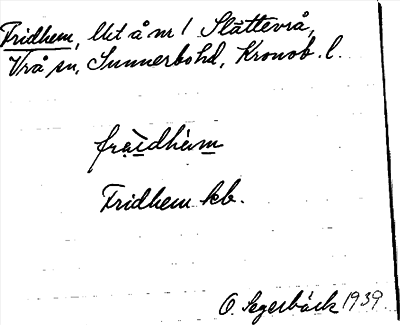 Fridhem, lht å nr 1 Slättevrå,
Vrå sn, Sunnerbo hd, Kronob. l.
Fridhem kb.
O. Segerbäck 1939.